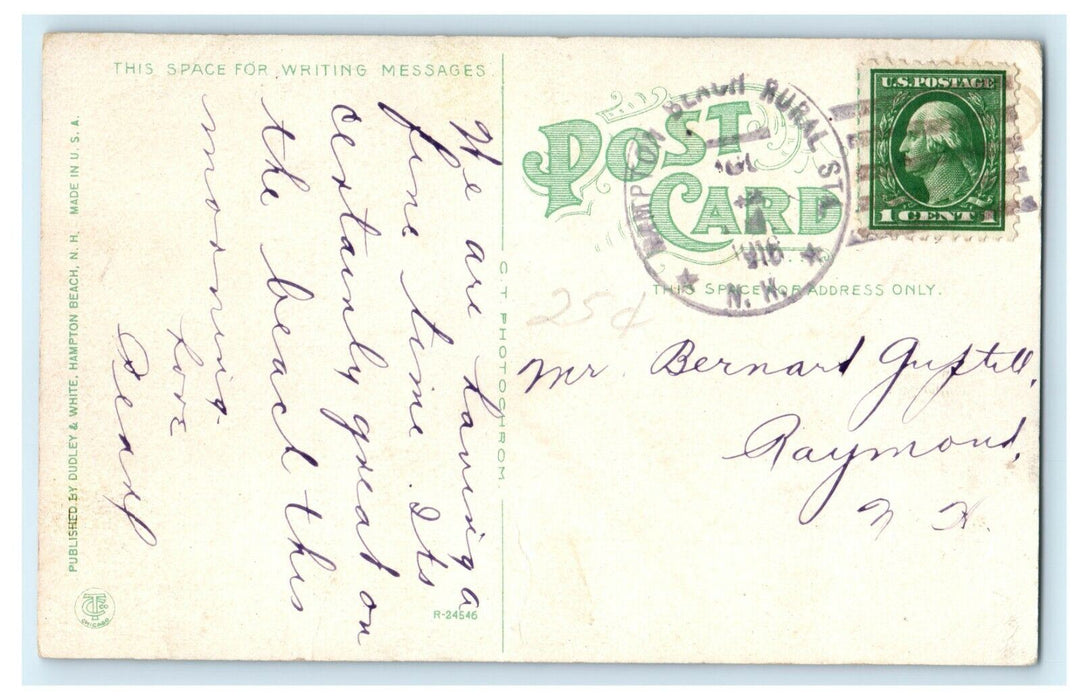 THIS SPACE FOR WRITING MESSAGES
We are having a
fine time. Its
certainly great on
the beach this
morning.
Love
Pearl
PUBLISHED BY DUDLEY & WHITE, HAMPTON BEACH, N. H. MADE IN U. S. A.
CHICAGO
R-24546
C. T. PHOTOCHROM
POST
CARD
HAMPTON BEACH RURAL STA.
1916
N. H.
U.S. POSTAGE
1 CENT 1
THIS SPACE FOR ADDRESS ONLY.
25¢
Mr Bernard Guptill,
Raymond,
N. H.